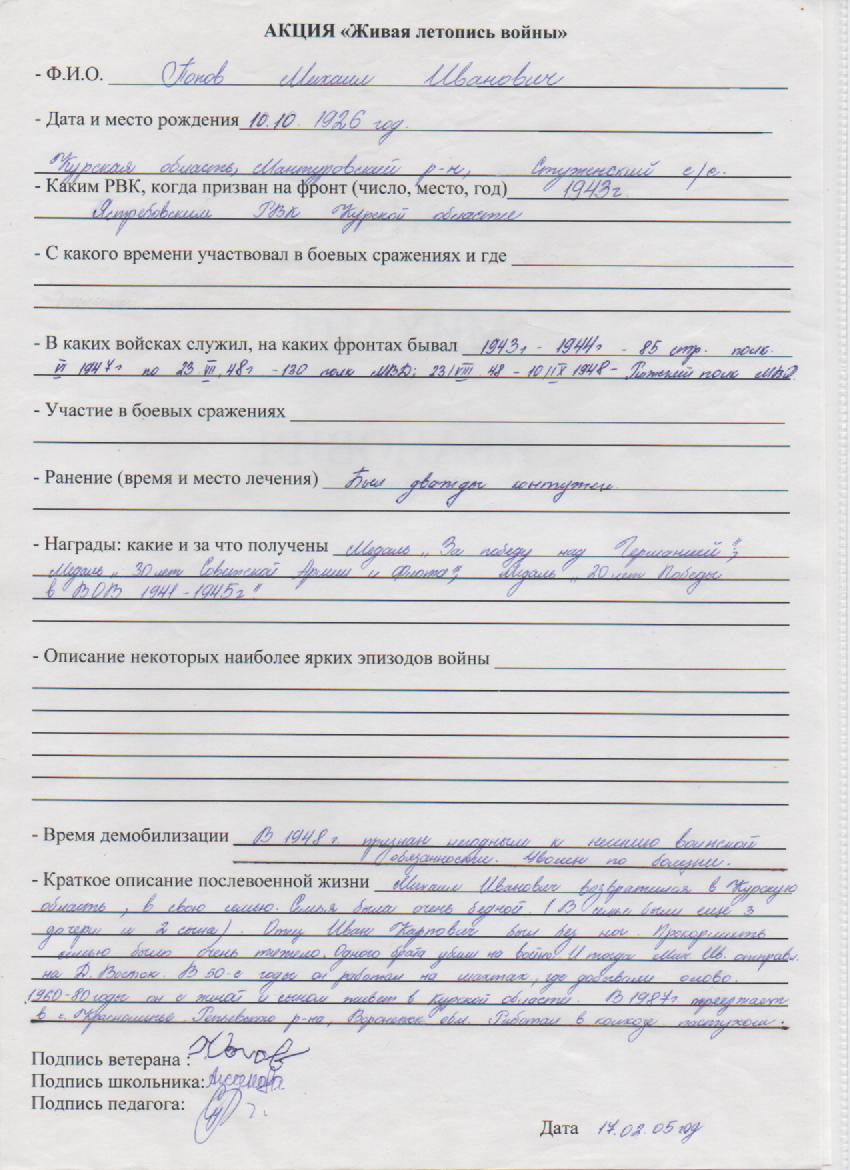 АКЦИЯ «Живая летопись войны»
- Ф.И.О. Попов Михаил Иванович
- Дата и место рождения 10.10. 1926 год.
Курская область, Мантуровский р-н, Стуженский с/с.
- Каким РВК, когда призван на фронт (число, место, год) 1943г.
Ястребовским РВК Курской области
- С какого времени участвовал в боевых сражениях и где
- В каких войсках служил, на каких фронтах бывал 1943г - 1944г - 85 стр. полк.
VI 1947г по 23.VIII.48г - 130 полк МВД; 23/VIII.48 - 10/IX 1948 - полк МВД
- Участие в боевых сражениях
- Ранение (время и место лечения) Был дважды контужен
- Награды: какие и за что получены Медаль „За победу над Германией";
Медаль „30 лет Советской Армии и Флота"; Медаль „20 лет Победы
в ВОВ 1941 - 1945г."
- Описание некоторых наиболее ярких эпизодов войны
- Время демобилизации В 1948 г. признан негодным к несению воинской
обязанности. Уволен по болезни.
- Краткое описание послевоенной жизни Михаил Иванович возвратился в Курскую
область, в свою семью. Семья была очень бедной. (В семье были еще 3
дочери и 2 сына). Отец Иван Карпович был без ног. Прокормить
семью было очень тяжело. Одного брата убили на войне. И тогда Мих. Ив. отправ.
на Д. Восток. В 50-е годы он работал на шахтах, где добывали олово.
1960-80 годы он с женой и сыном живет в Курской области. В 1987г переезжает
в с. Краснолипье Репьевского р-на, Воронежской обл. Работал в колхозе пастухом.
Подпись ветерана :
Подпись школьника:
Подпись педагога:
Дата 17.02.05 год